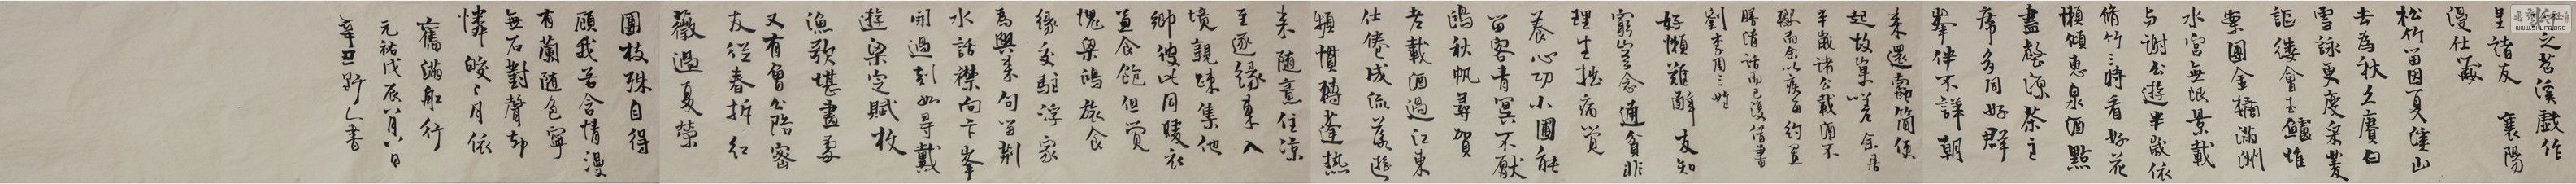 將之苕溪戲作
呈諸友 襄陽
漫仕黻
松竹留因夏溪山
去為秋久賡白
雪詠更度采菱
謳縷會玉鱸堆
案團金橘滿洲
水宮無限景載
与謝公遊半歲依
脩竹三時看好花
懶傾惠泉酒點
盡壑源茶主
席多同好群
峯伴不譁朝
来還蠹簡便
起故巢嗟余居
半歲諸公載酒不
輟而余以疾每約置
膳清話而已復借書
劉李周三姓
好懶難辭友知
窮豈念通貧非
理生拙病覺
養心功小圃能
留客青冥不厭
鴻秋帆尋賀
老載酒過江東
仕倦成流落遊
頻慣轉蓬熱
来隨意住涼
至逐緣東入
境親踈集他
鄉彼此同暖衣
兼食飽但覺
愧梁鴻旅食
緣交駐浮家
為興来句留荆
水話襟向卞峯
開過剡如尋戴
遊梁定賦枚
漁歌堪畫處
又有魯公陪密
友從春拆紅
薇過夏榮
團枝殊自得
顧我若含情漫
有蘭隨色寧
無石對聲却
憐皎々月依
舊滿船行
元祐戊辰八月八日
辛丑 書